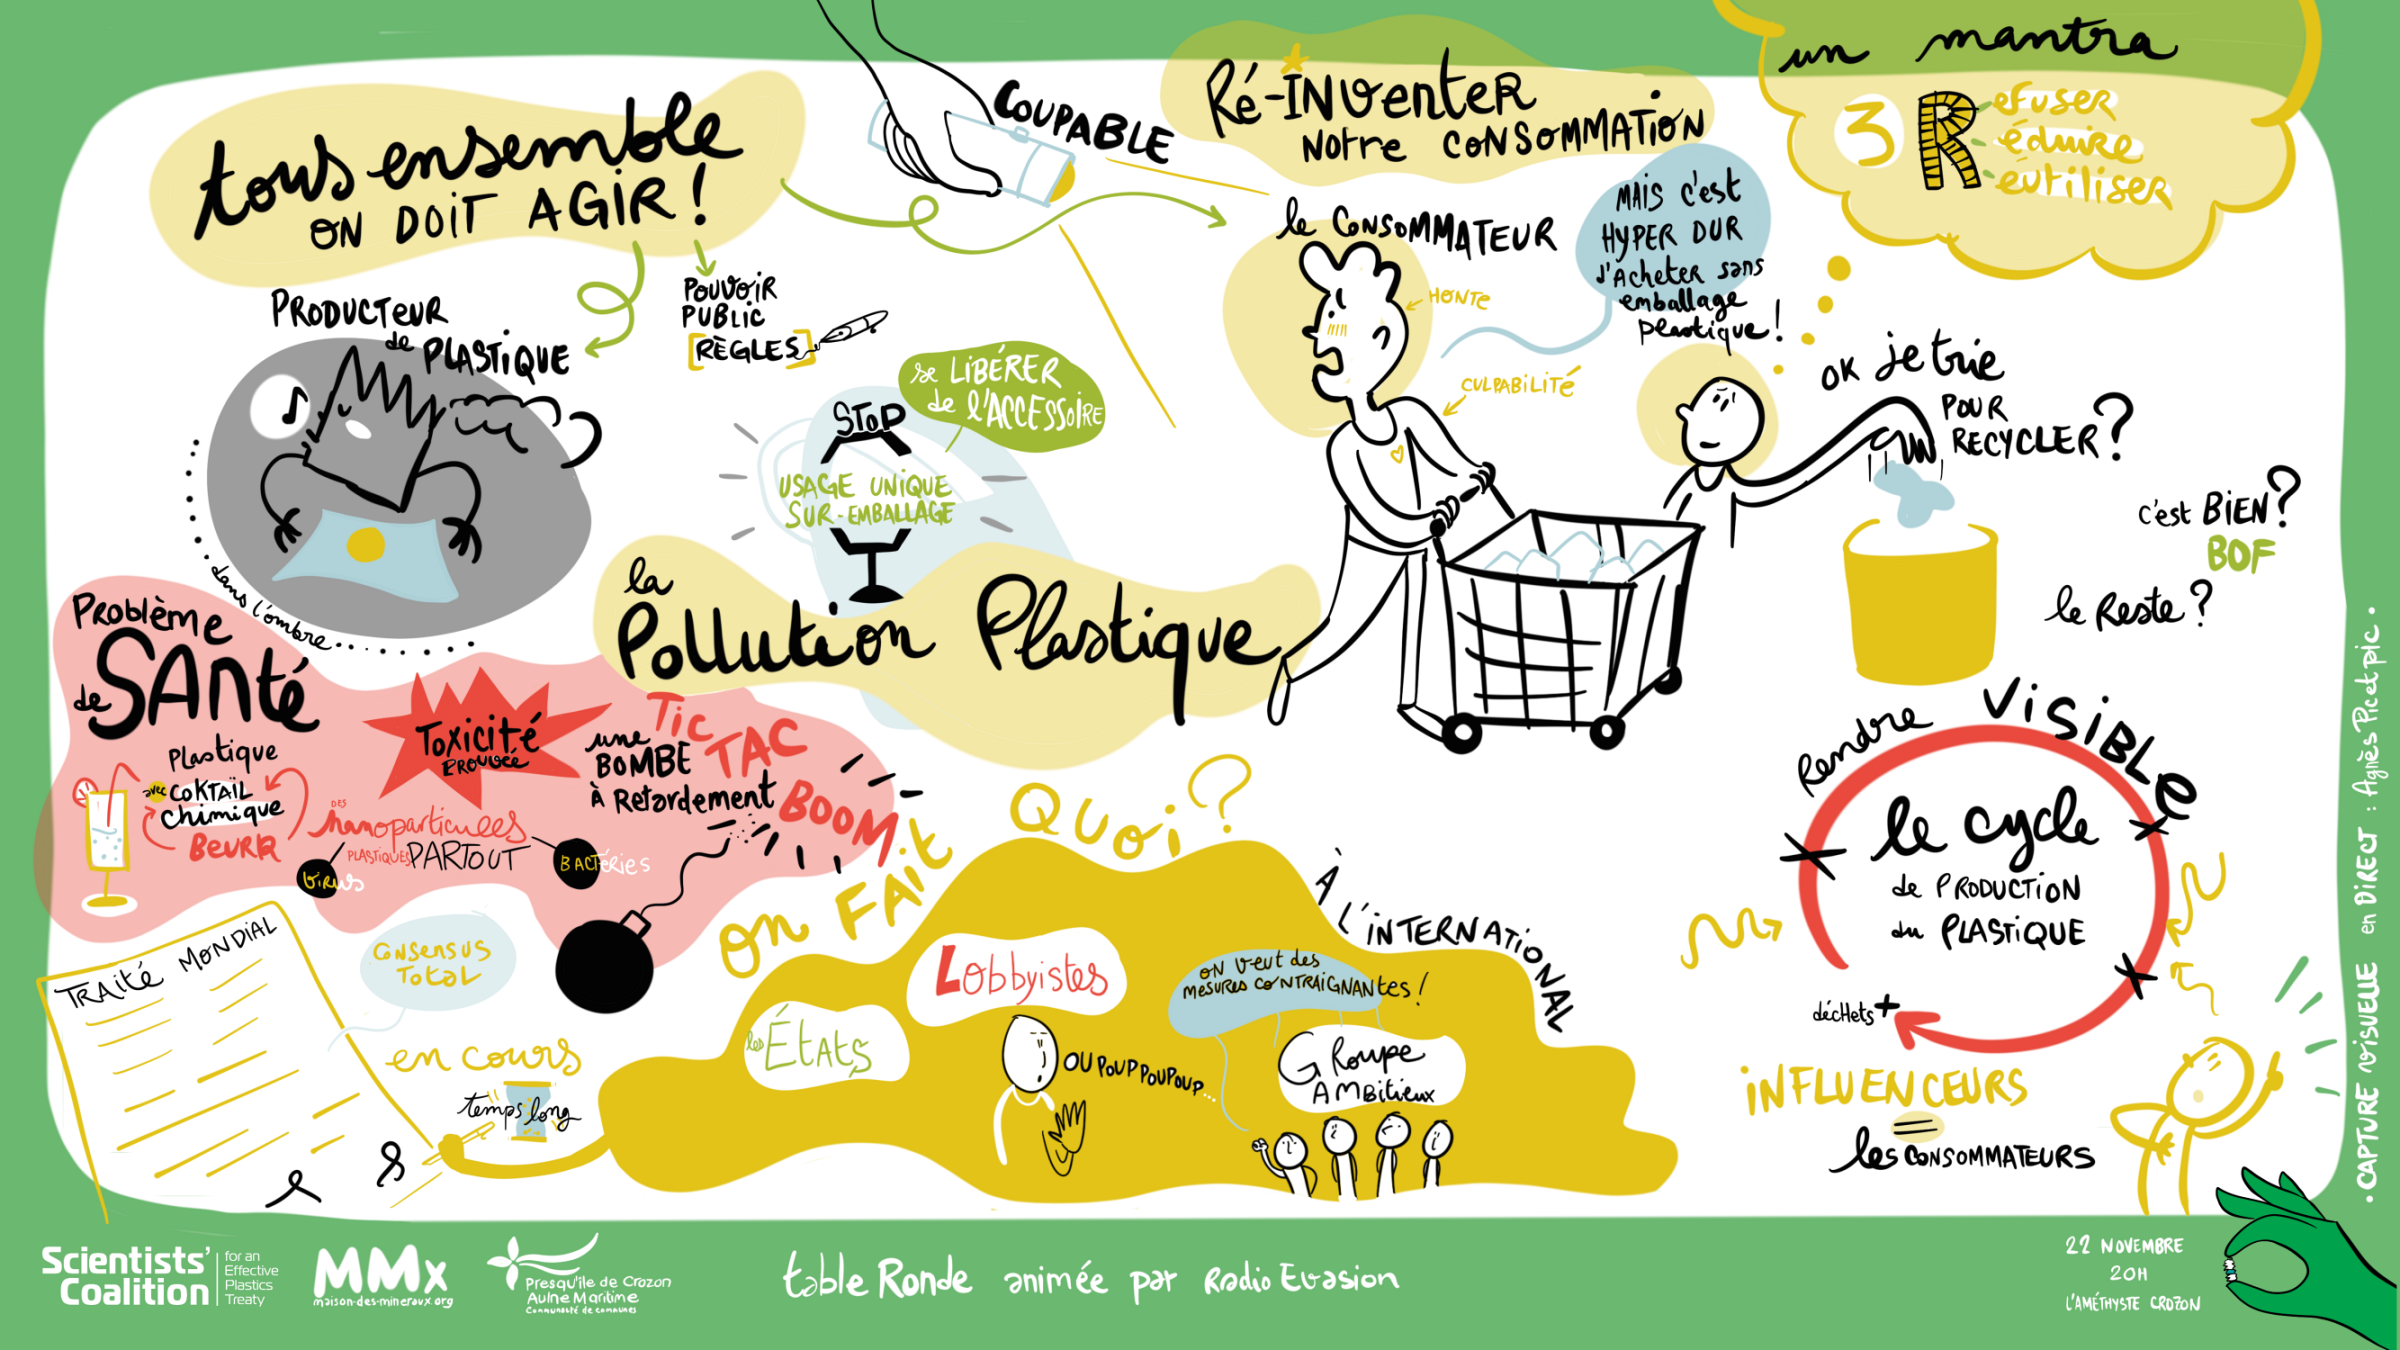 tous ensemble
ON DOIT AGIR !
PRODUCTEUR
de PLASTIQUE
dans l'ombre
POUVOIR
PUBLIC
[RÈGLES]
COUPABLE
Ré-INVenter
Notre CONSOMMATION
le CONSOMMATEUR
HONTE
CULPABILITÉ
MAIS c'est
HYPER DUR
d'Acheter sans
emballage
plastique !
un mantra
3 R
efuser
éduire
éutiliser
OK je trie
POUR
RECYCLER ?
c'est BIEN ?
BOF
le Reste ?
se LIBÉRER
de l'ACCESSOIRE
STOP
USAGE UNIQUE
SUR-EMBALLAGE
la
Pollution Plastique
PROBLÈME
de SANTÉ
Plastique
avec COKTAÏL
chimique
BEURK
Toxicité
PROUVÉE
DES
nanoparticules
PLASTIQUES PARTOUT
VIRUS
BACTÉRIES
une
BOMBE
à Retardement
TIC
TAC
BOOM
TRAITÉ MONDIAL
CONSENSUS
TOTAL
en cours
temps long
on FAIT QUOI ?
À L'INTERNATIONAL
les ÉTATS
Lobbyistes
OUPOUPPOUPOUP...
ON VEUT des
MESURES CONTRAIGNANTES !
GROUPE
AMBITIEUX
Rendre VISIBLE
le cycle
de PRODUCTION
du PLASTIQUE
décHets +
INFLUENCEURS
=
les CONSOMMATEURS
• CAPTURE VISUELLE en DIRECT : Agnès Pic et pic •
Scientists'
Coalition
for an
Effective
Plastics
Treaty
MMx
maison-des-mineraux.org
Presqu'île de Crozon
Aulne Maritime
Communauté de communes
table Ronde animée par Radio Evasion
22 NOVEMBRE
20H
L'AMÉTHYSTE CROZON